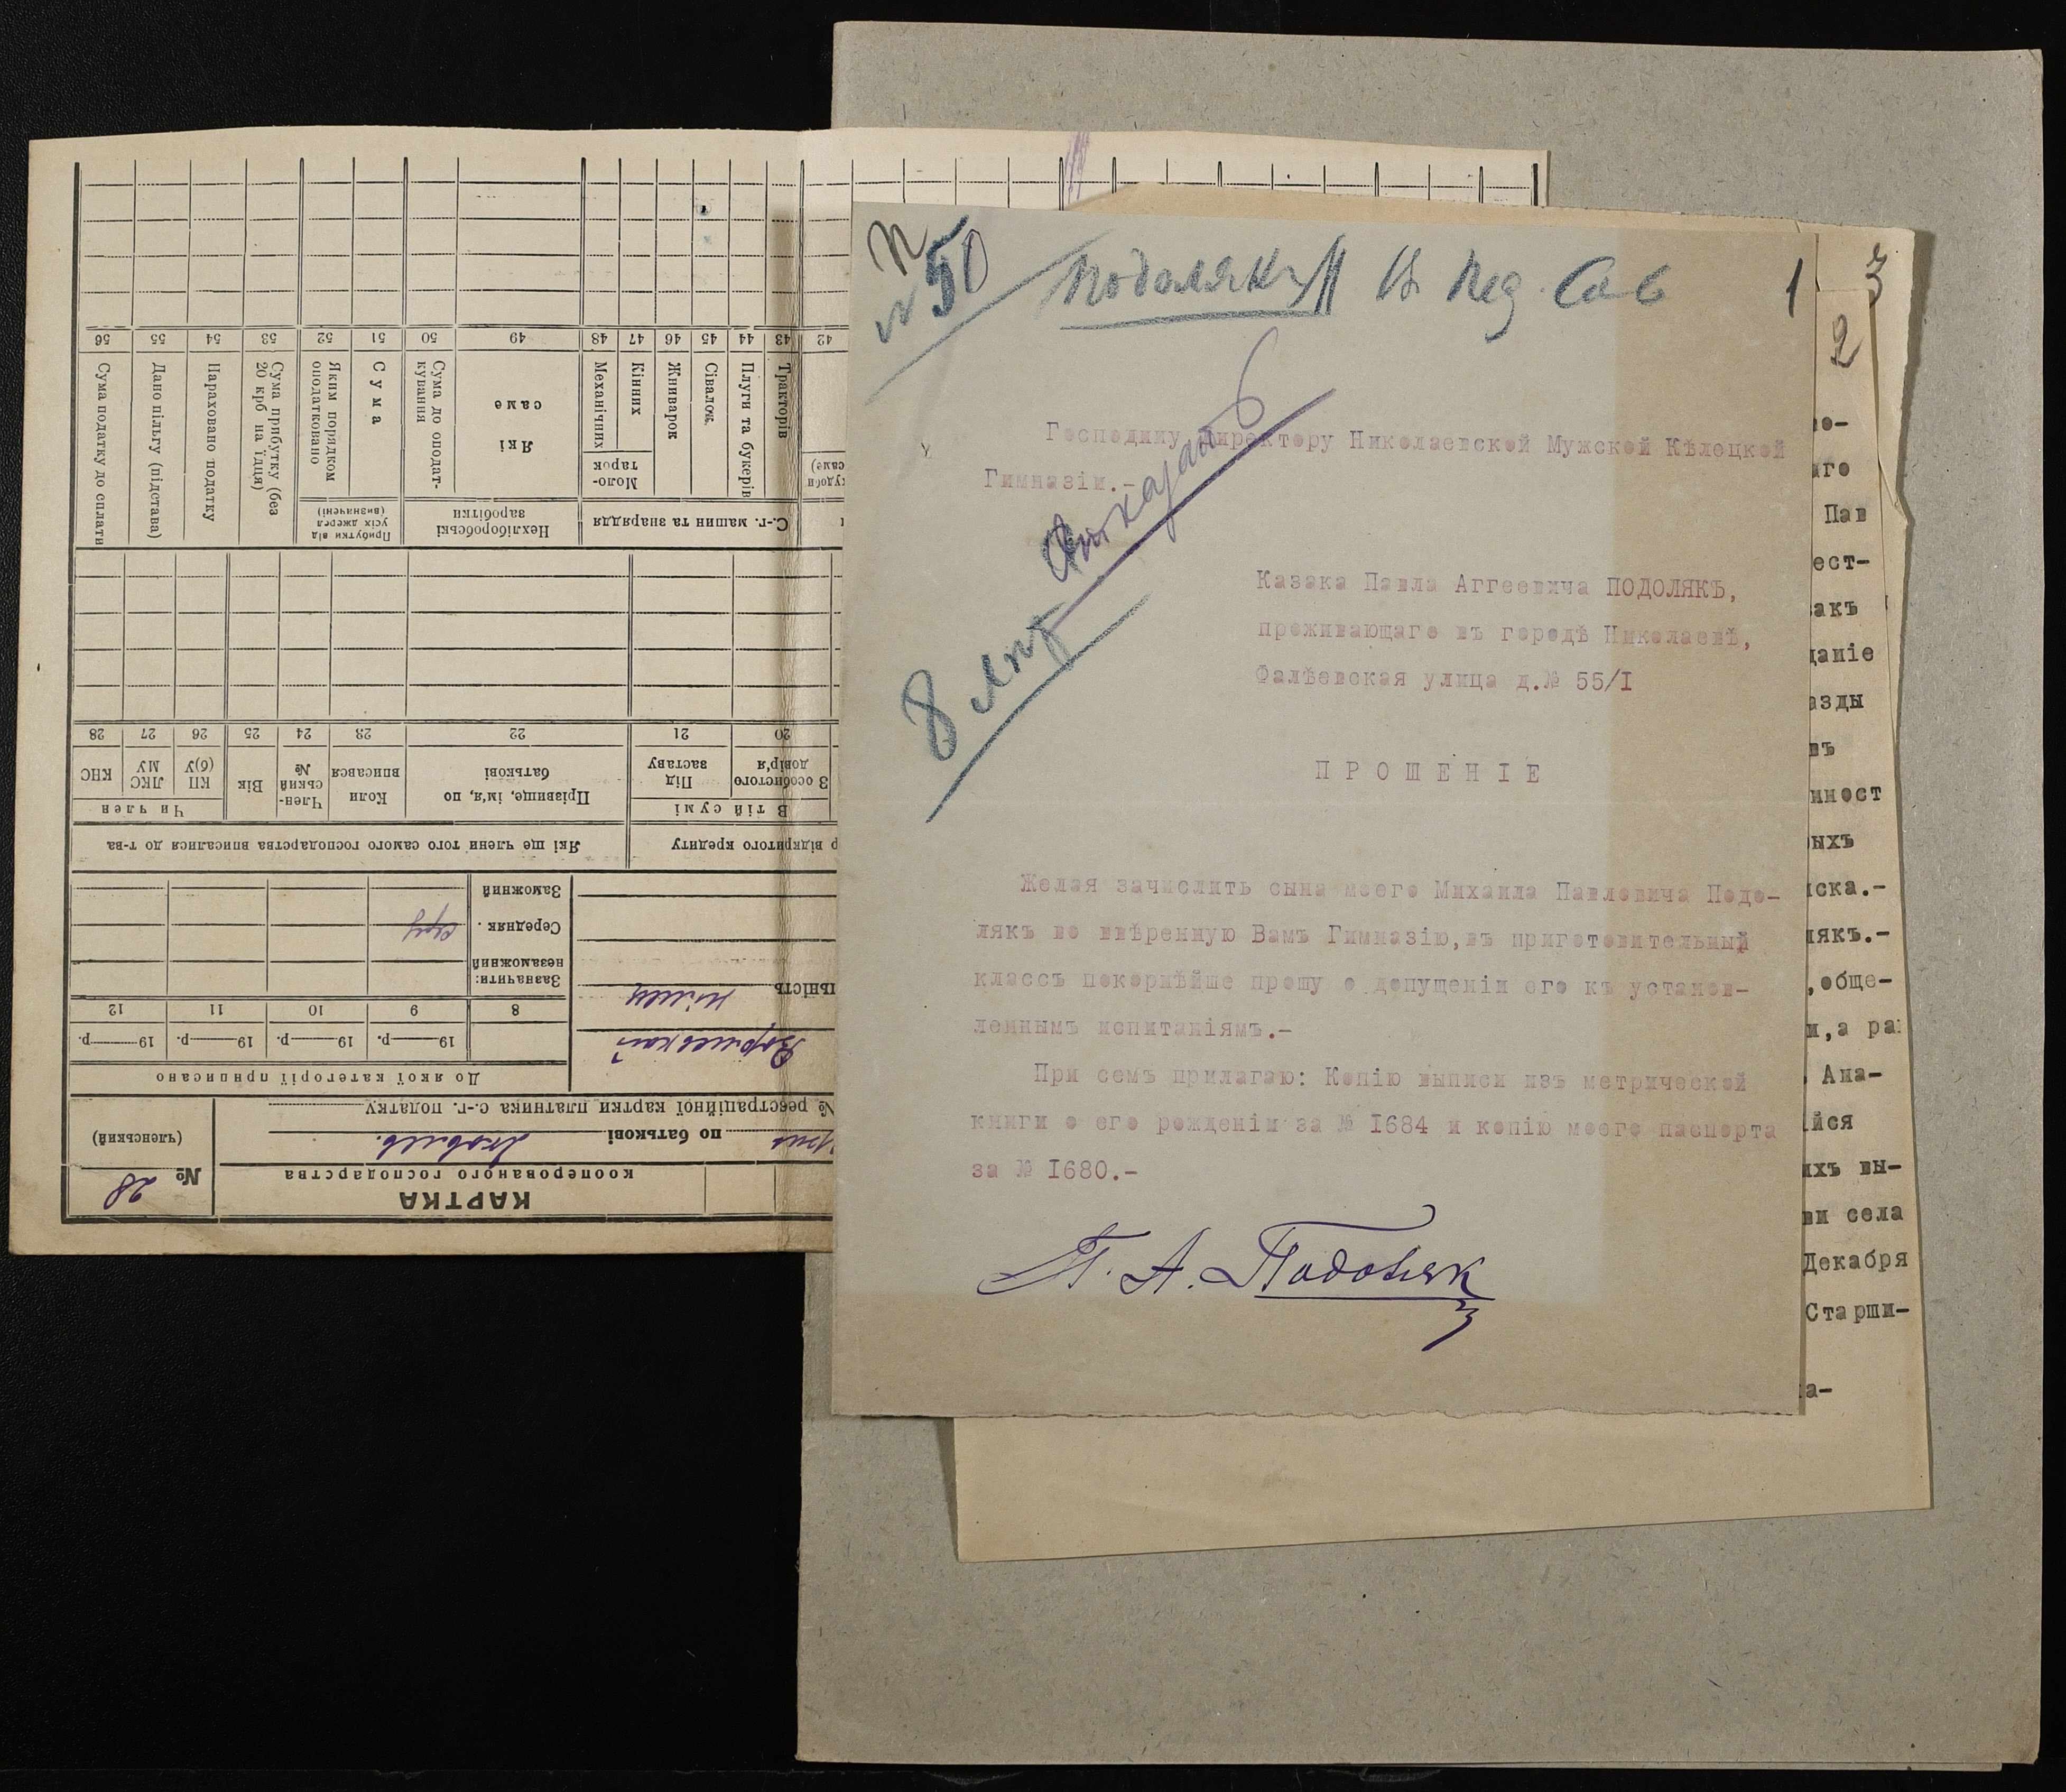 № 50
Подолякъ В Пед. Сов
1
3
2
Отказать
8 лѣтъ
Господину Директору Николаевской Мужской Кѣлецкой
Гимназіи.-
Казака Павла Аггеевича ПОДОЛЯКЪ,
проживающаго въ городѣ Николаевѣ,
Фалѣевская улица д.№ 55/I
ПРОШЕНІЕ
Желая зачислить сына моего Михаила Павловича Подо-
лякъ во ввѣренную Вамъ Гимназію,въ приготовительный
классъ покорнѣйше прошу о допущеніи его къ установ-
леннымъ испытаніямъ.-
При семъ прилагаю: Копію выписи изъ метрической
книги о его рожденіи за № I684 и копію моего паспорта
за № I680.-
П. А. Подоляк
аго
Пав
ест-
акъ
даніе
азды
въ
ност
ыхъ
ска.-
лякъ.-
,обще-
и,а ра
Ана-
йся
ихъ вы-
ви села
Декабря
Старши-
а-
№ 28
(членський)
КАРТКА
кооперованого господарства
по батькові Яковлев.
№ реєстраційної картки платника с.-г. податку
До якої категорії приписано
19 р. 19 р. 19 р. 19 р.
8 9 10 11 12
Зазначити:
незаможній
Середняк . сер
Заможній
льність
німец
р відкритого кредиту
Які ще члени того самого господарства вписалися до т-ва
В тій сумі
З особистого довір'я
Під заставу
Прізвище, ім'я, по батькові
Коли вписався
Член-ський №
Вік
Чи член
КП (б)У
ЛКС МУ
КНС
20 21 22 23 24 25 26 27 28
С.-г. машин та знаряддя
Нехліборобські заробітки
Прибутки від усіх джерел (визначені)
Тракторів
Плуги та букерів
Сівалок
Жниварок
Моло-тарок
Кінних
Механічних
Які саме
Сума до оподат-кування
Сума
Яким порядком оподатковано
Сума прибутку (без 20 крб на їдця)
Нараховано податку
Дано пільгу (підстава)
Сума податку до сплати
42 43 44 45 46 47 48 49 50 51 52 53 54 55 56